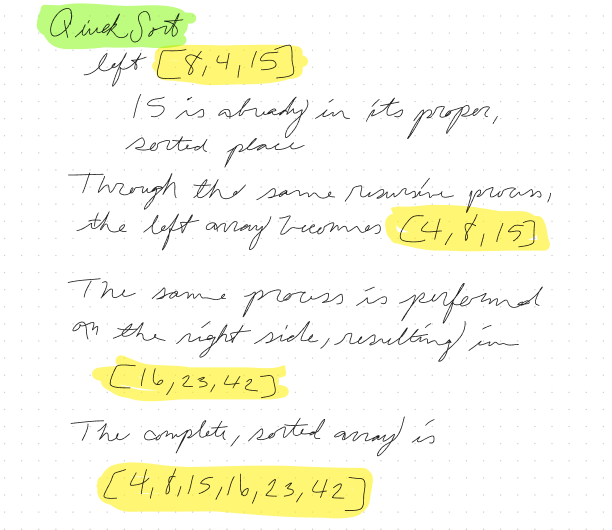 Quick Sort
left [8,4,15]
15 is already in its proper,
sorted place
Through the same recursive process,
the left array becomes [4,8,15]
The same process is performed
on the right side, resulting in
[16,23,42]
The complete, sorted array is
[4,8,15,16,23,42]